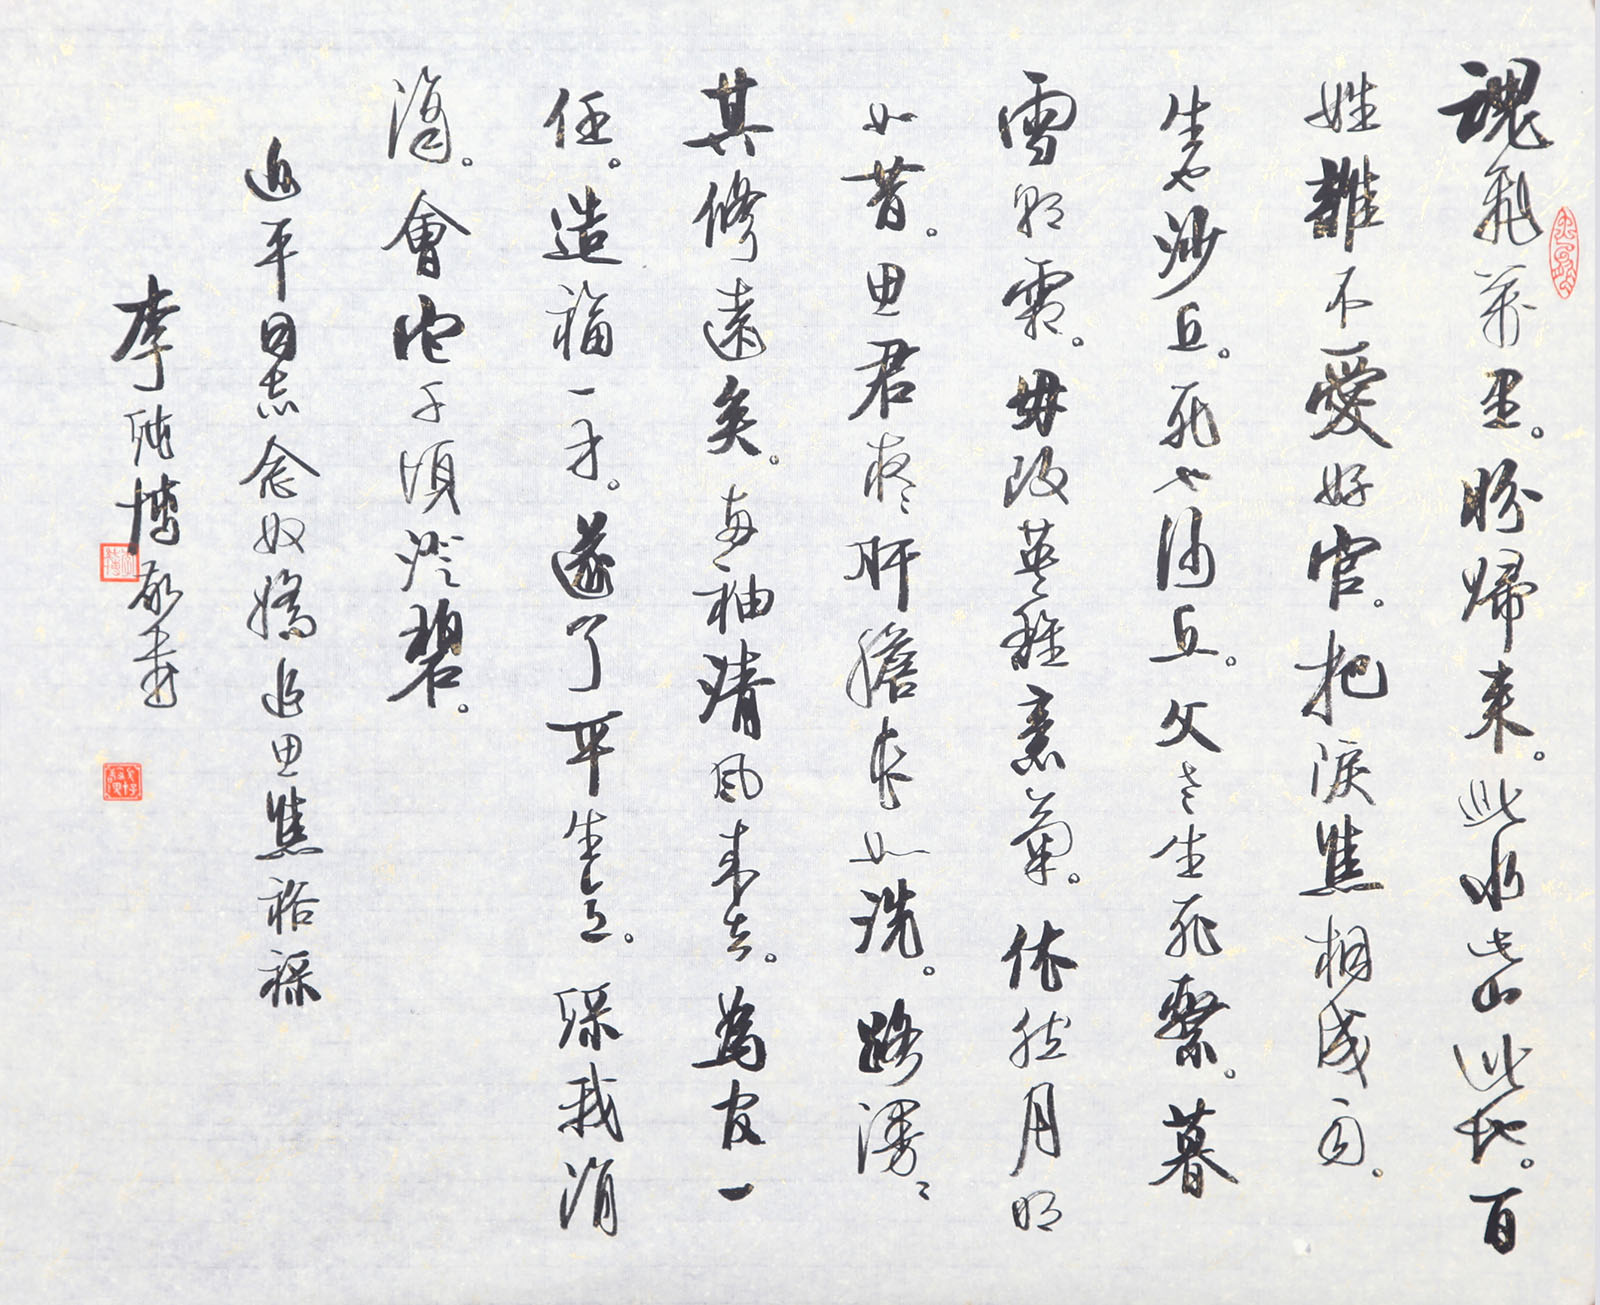 魂飛萬里。盼歸來。此水此山此地。百
姓誰不愛好官。把淚焦桐成雨。
生也沙丘。死也沙丘。父老生死繫。暮
雪朝霜。毋改英雄意氣。依然月明
如昔。思君夜夜肝膽長如洗。路漫漫
其修遠矣。兩袖清風來去。為官一
任。造福一方。遂了平生意。綠我涓
滴。會它千頃澄碧。
近平同志念奴嬌追思焦裕祿
李 博敬書